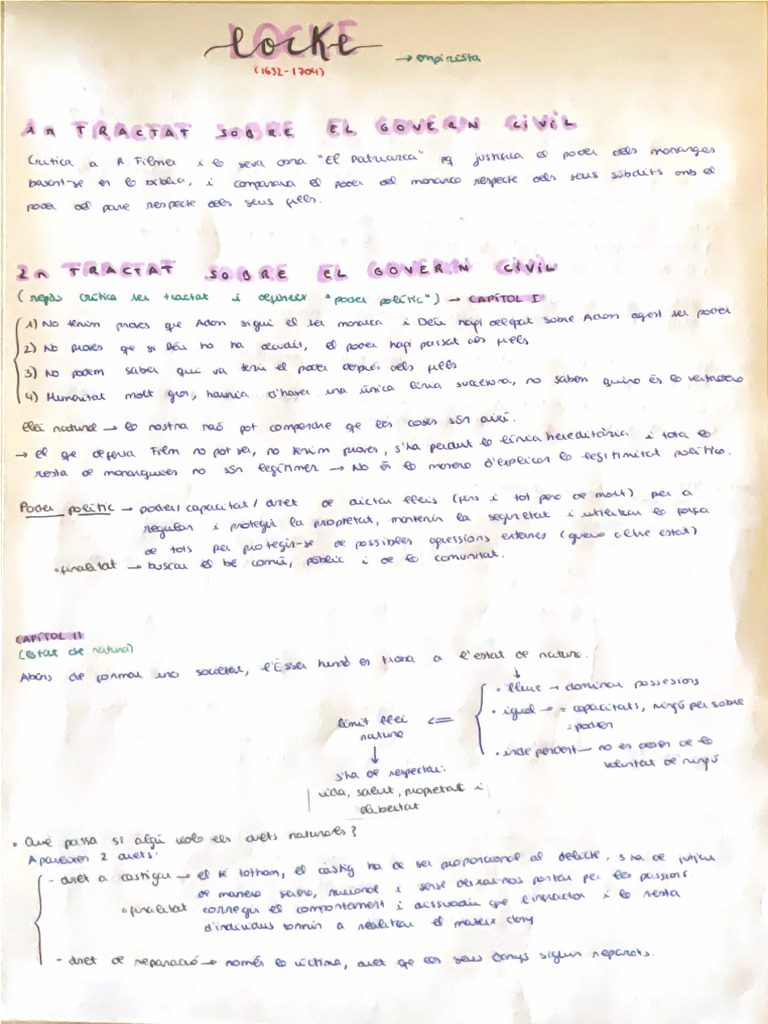 LOCKE → empirista
(1632-1704)
1r TRACTAT SOBRE EL GOVERN CIVIL
Crítica a R. Filmer i la seva obra "El Patriarca" pq justifica el poder dels monarques
basant-se en la bíblia, i comparava el poder del monarca respecte dels seus súbdits amb el
poder del pare respecte dels seus fills.
2n TRACTAT SOBRE EL GOVERN CIVIL
(repàs crítica 1er tractat i defineix "poder polític") → CAPÍTOL I
1) No tenim proves que Adan sigui el 1er monarca i Déu hagi delegat sobre Adam aquest 1er poder
2) No proves que si Déu ho ha decidit, el poder hagi passat als fills
3) No podem saber qui va tenir el poder després dels fills
4) Humanitat molt gran, hauria d'haver una única línia successora, no sabem quina és la vertadera
Llei natural → la nostra raó pot comprendre que les coses són així.
→ el que defensa Film no pot ser, no tenim proves, s'ha perdut la línia hereditària i tota la
resta de monarquies no són legítimes → No és la manera d'explicar la legitimitat política.
Poder polític → poder/capacitat/dret de dictar lleis (fins i tot pena de mort) per a
regular i protegir la propietat, mantenir la seguretat i utilitzar la força
de tots per protegir-se de possibles agressions externes (guerra altre estat)
• finalitat → buscar el bé comú, públic i de la comunitat.
CAPÍTOL II
(Estat de natura)
Abans de formar una societat, l'Ésser humà es troba a l'estat de natura.
• lliure → dominar possessions
• igual → = capacitats, ningú per sobre
= poders
• independent → no es depèn de la
voluntat de ningú
límit llei
natural
s'ha de respectar:
vida, salut, propietat i
llibertat
• Què passa si algú viola els drets naturals?
Apareixen 2 drets:
- dret a castigar → el té tothom, el càstig ha de ser proporcional al delicte, s'ha de jutjar
de manera serena, racional i sense deixar-nos portar per les passions.
• finalitat corregir el comportament i dissuadir que l'infractor i la resta
d'individus tornin a realitzar el mateix dany
- dret de reparació → només la víctima, dret que els seus danys siguin reparats.